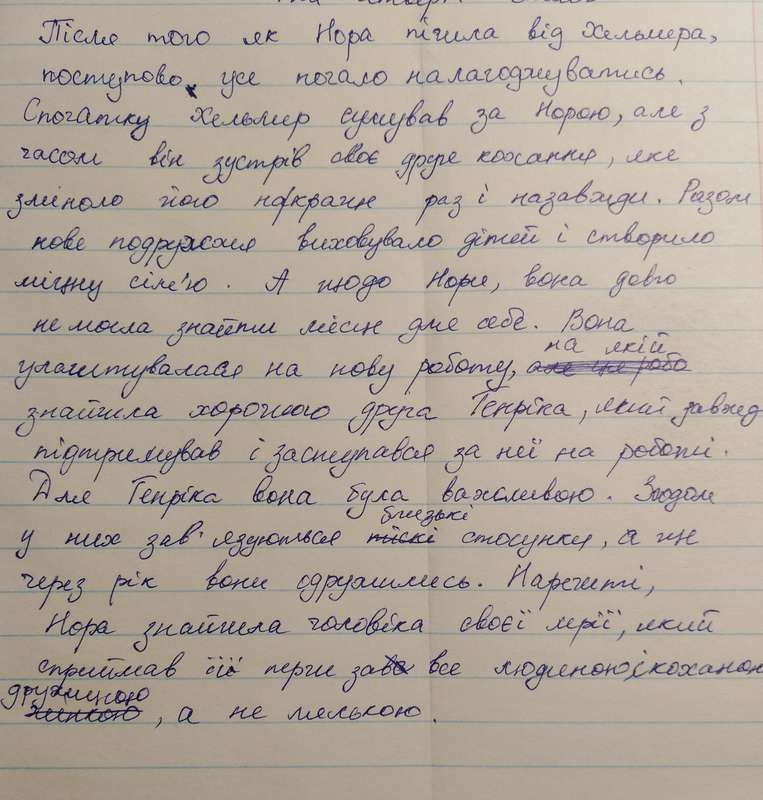 Після того як Нора пішла від Хельмера,
поступово усе почало налагоджуватись.
Спочатку Хельмер сумував за Норою, але з
часом він зустрів своє друге кохання, яке
змінило його на краще раз і назавжди. Разом
нове подружжя виховувало дітей і створило
міцну сім'ю. А щодо Нори, вона довго
не могла знайти місця для себе. Вона
улаштувалася на нову роботу, на якій
знайшла хорошого друга Генріка, який завжд
підтримував і заступався за неї на роботі.
Для Генріка вона була важливою. Згодом
у них зав'язуються близькі стосунки, а ще
через рік вони одружились. Нарешті,
Нора знайшла чоловіка своєї мрії, який
сприймав її перш за все людиною, і коханою
дружиною, а не лялькою.